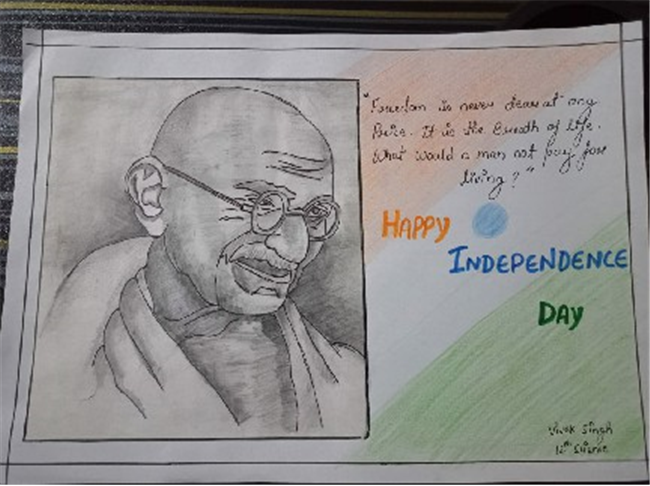 "Freedom is never dear at any
Price. It is the Breath of life.
What would a man not pay for
living?"
HAPPY
INDEPENDENCE
DAY
Vivek Singh
12th Science